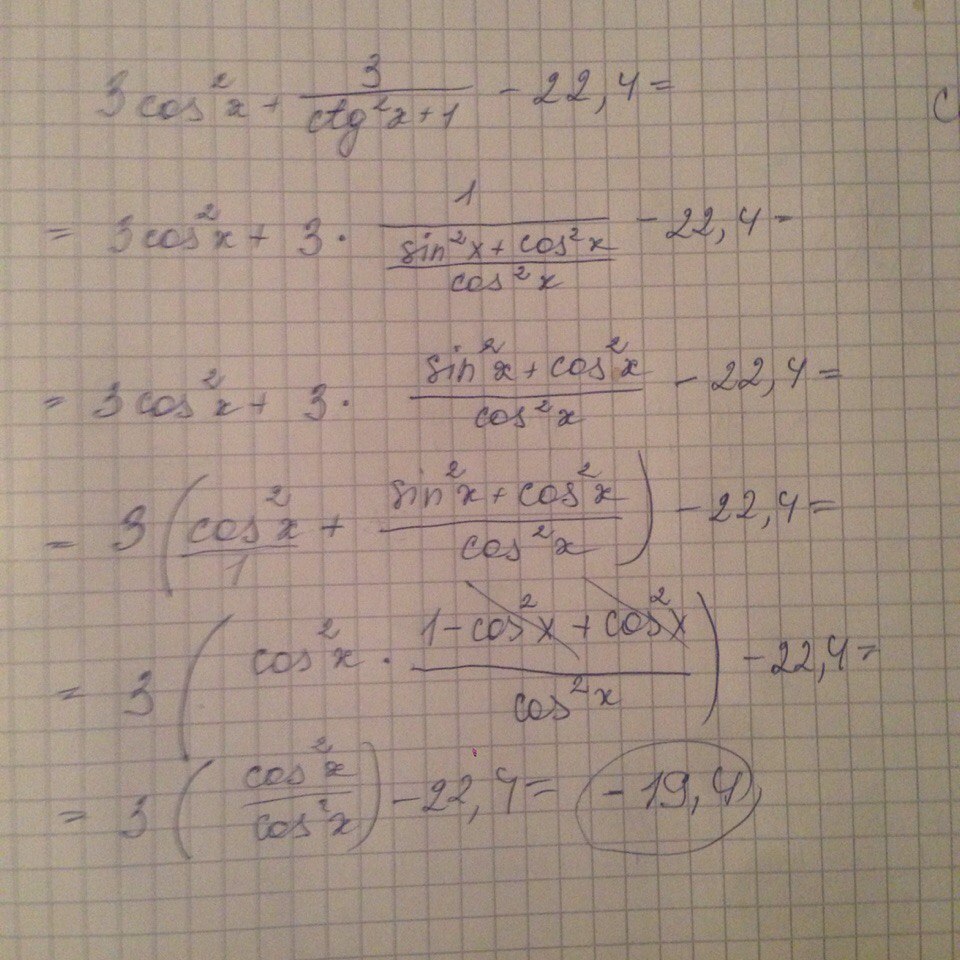 3cos²x + 3/(ctg²x+1) - 22,4 =
= 3cos²x + 3 · 1/((sin²x + cos²x)/cos²x) - 22,4 -
= 3cos²x + 3 · (sin²x + cos²x)/cos²x - 22,4 =
= 3(cos²x/1 + (sin²x + cos²x)/cos²x) - 22,4 =
= 3(cos²x · (1 - cos²x + cos²x)/cos²x) - 22,4 =
= 3(cos²x/cos²x) - 22,4 = -19,4